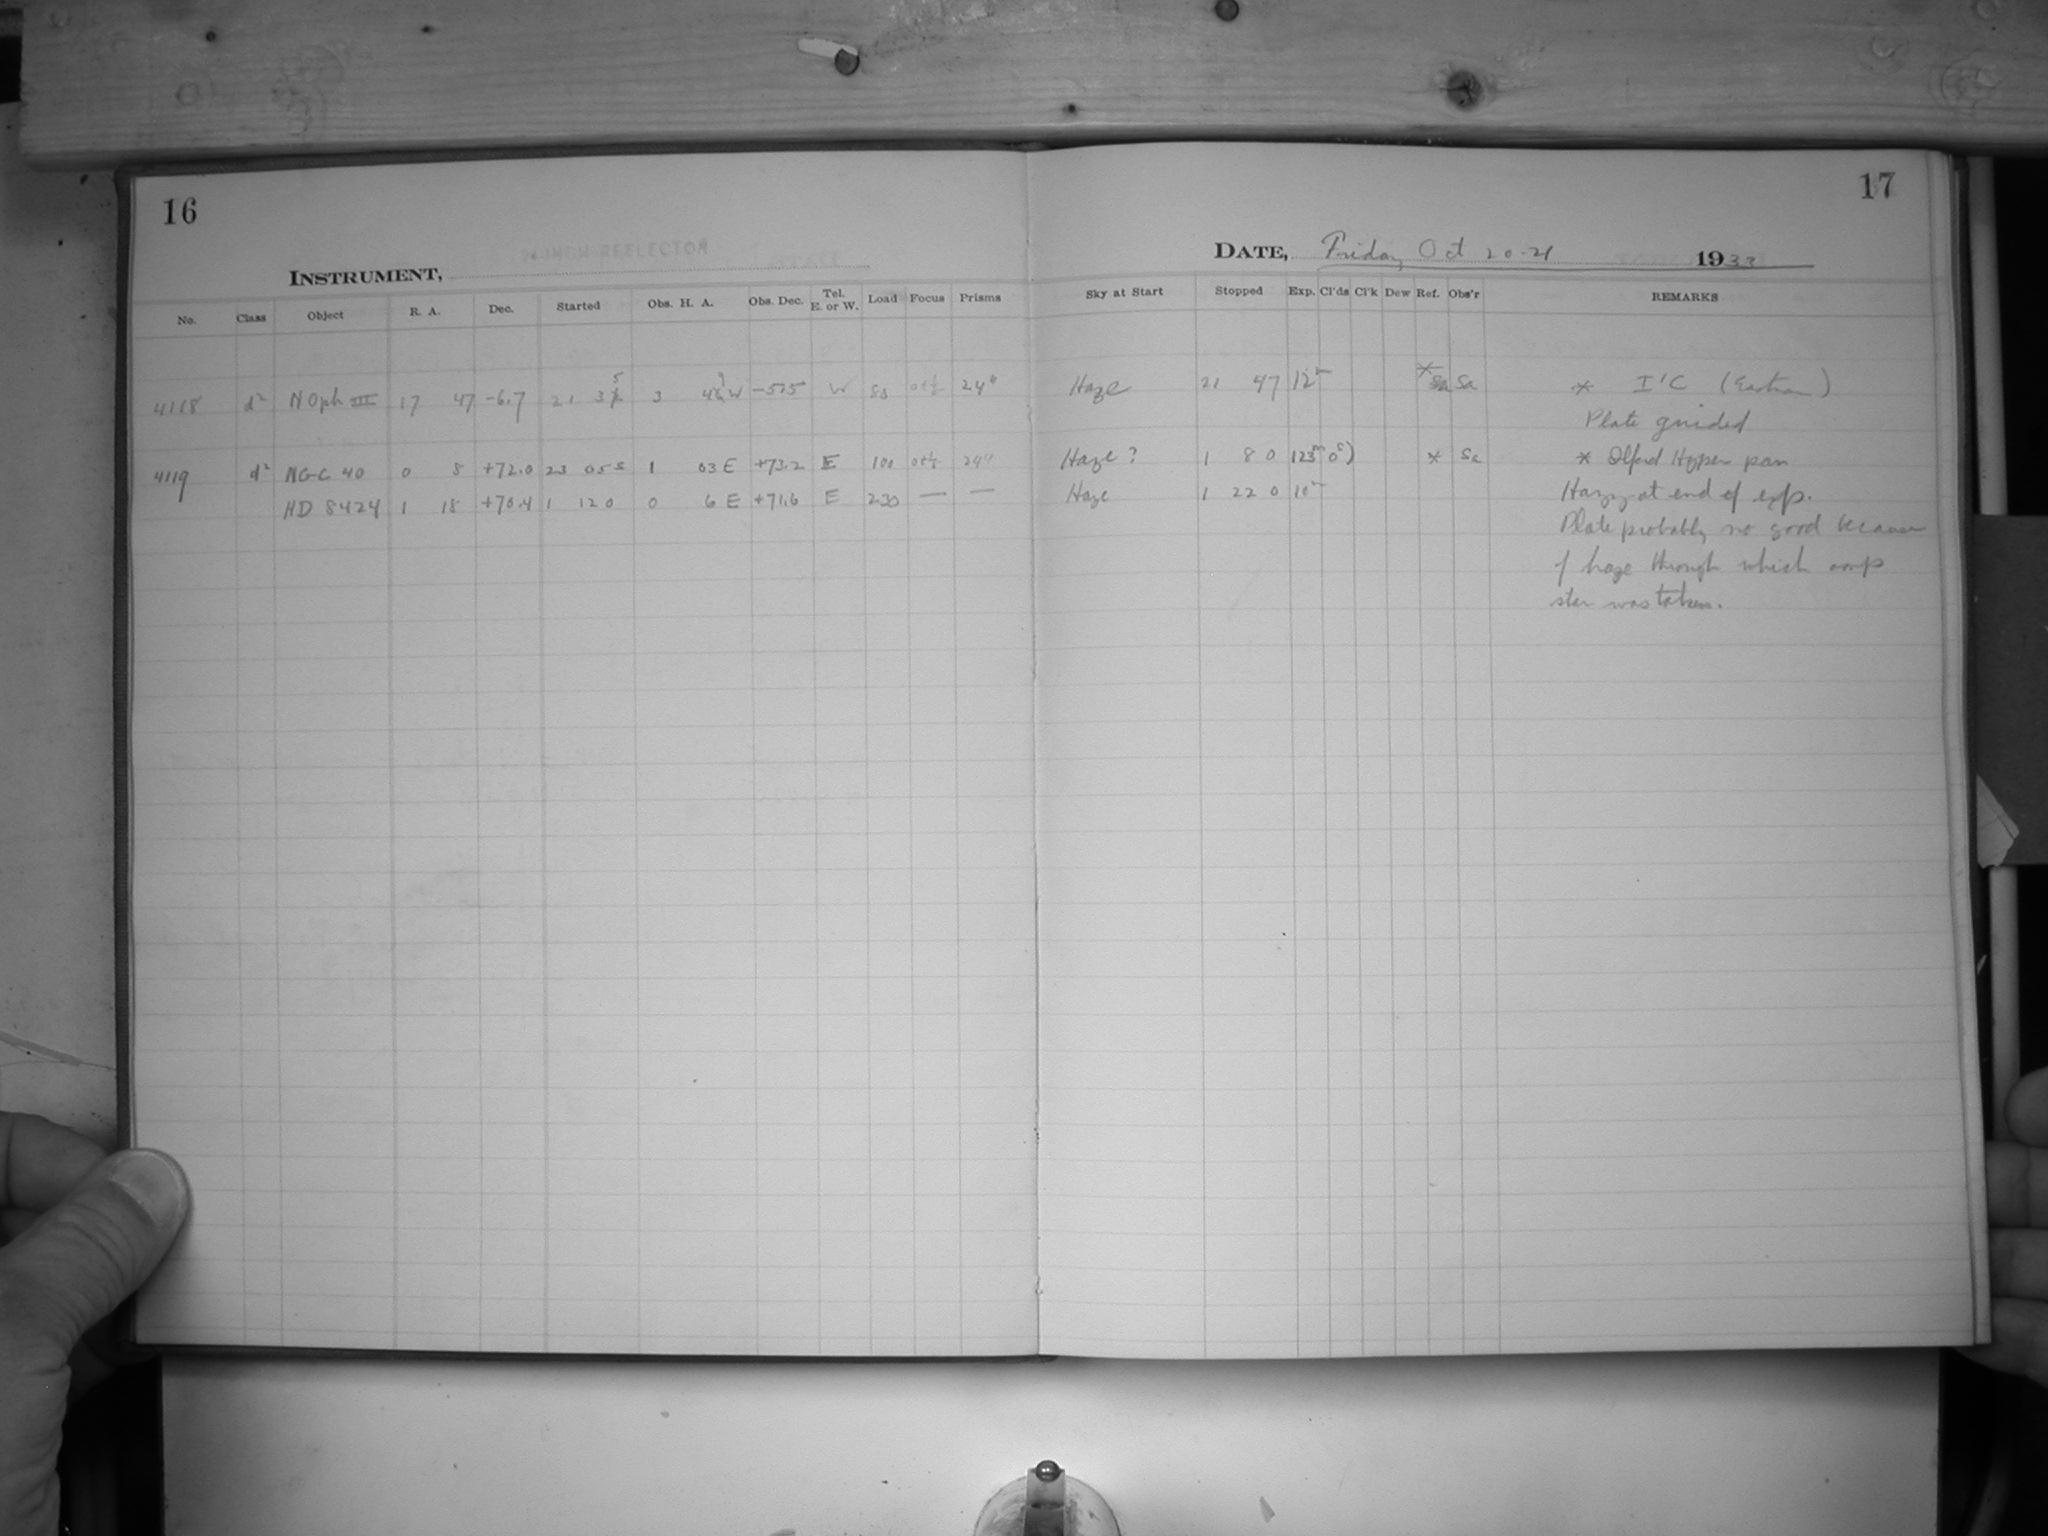 16
24-INCH REFLECTOR
INSTRUMENT,
No. Class Object R. A. Dec. Started Obs. H. A. Obs. Dec. Tel. E. or W. Load Focus Prisms
4118 d² N Oph III 17 47 -6.7 21 35 3 W W 24"
4119 d² NGC 40 0 8 +72.0 23 05 1 03 E +73.2 E 100 24"
HD 8424 1 18 +70.4 1 12 0 0 6 E +71.6 E 230 — —
17
DATE, Friday Oct 20-21 1933
Sky at Start Stopped Exp. Cl'ds Cl'k Dew Ref. Obs'r REMARKS
Haze 21 47 12m * Sa Sa * I'C (Eastman)
Plate guided
Haze? 1 8 0 123m 0s) * Sa * Ilford Hyper pan
Haze 1 22 0 10m Hazy at end of exp.
Plate probably no good because
of haze through which comp
star was taken.